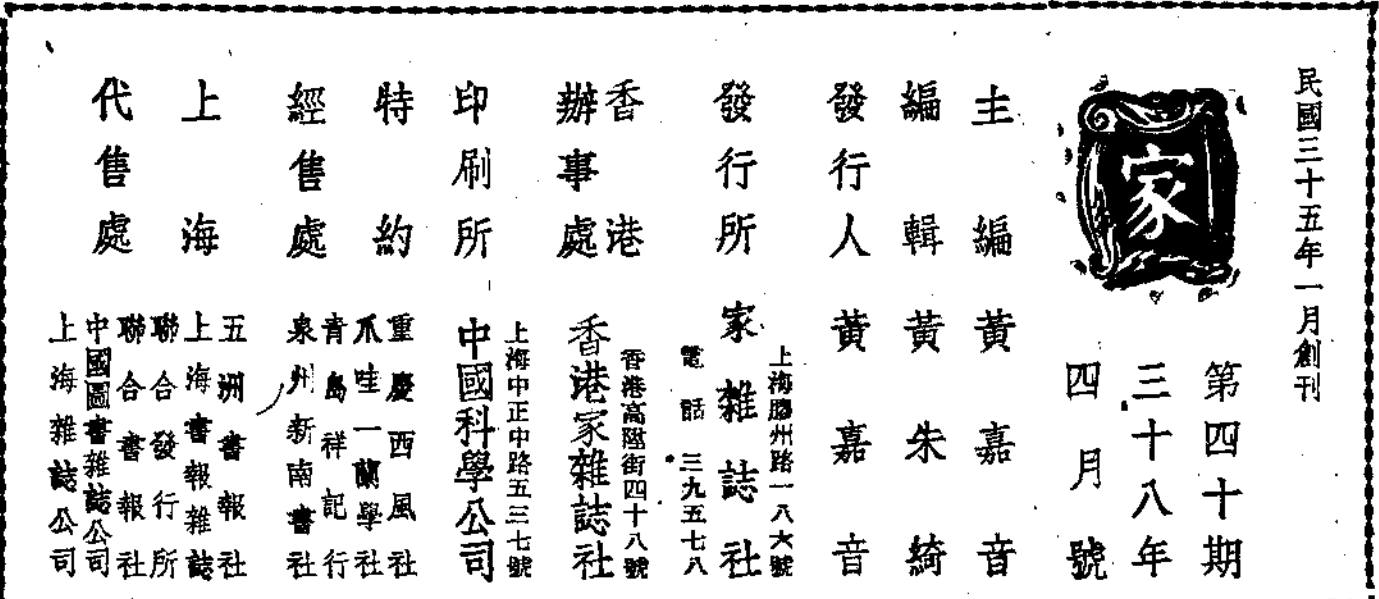 民國三十五年一月創刊
家
第四十期
三十八年
四月號
主編 黃嘉音
編輯 黃朱綺
發行人 黃嘉音
發行所 家雜誌社
上海膠州路一八六號
電話 三九五七八
香港
辦事處 香港家雜誌社
香港高陞街四十八號
印刷所 中國科學公司
上海中正中路五三七號
特約
經售處
重慶西風社
爪哇一蘭學社
青島祥記行
泉州新南書社
上海
代售處
五洲書報社
上海書報雜誌
聯合發行所
聯合書報社
中國圖書雜誌公司
上海雜誌公司